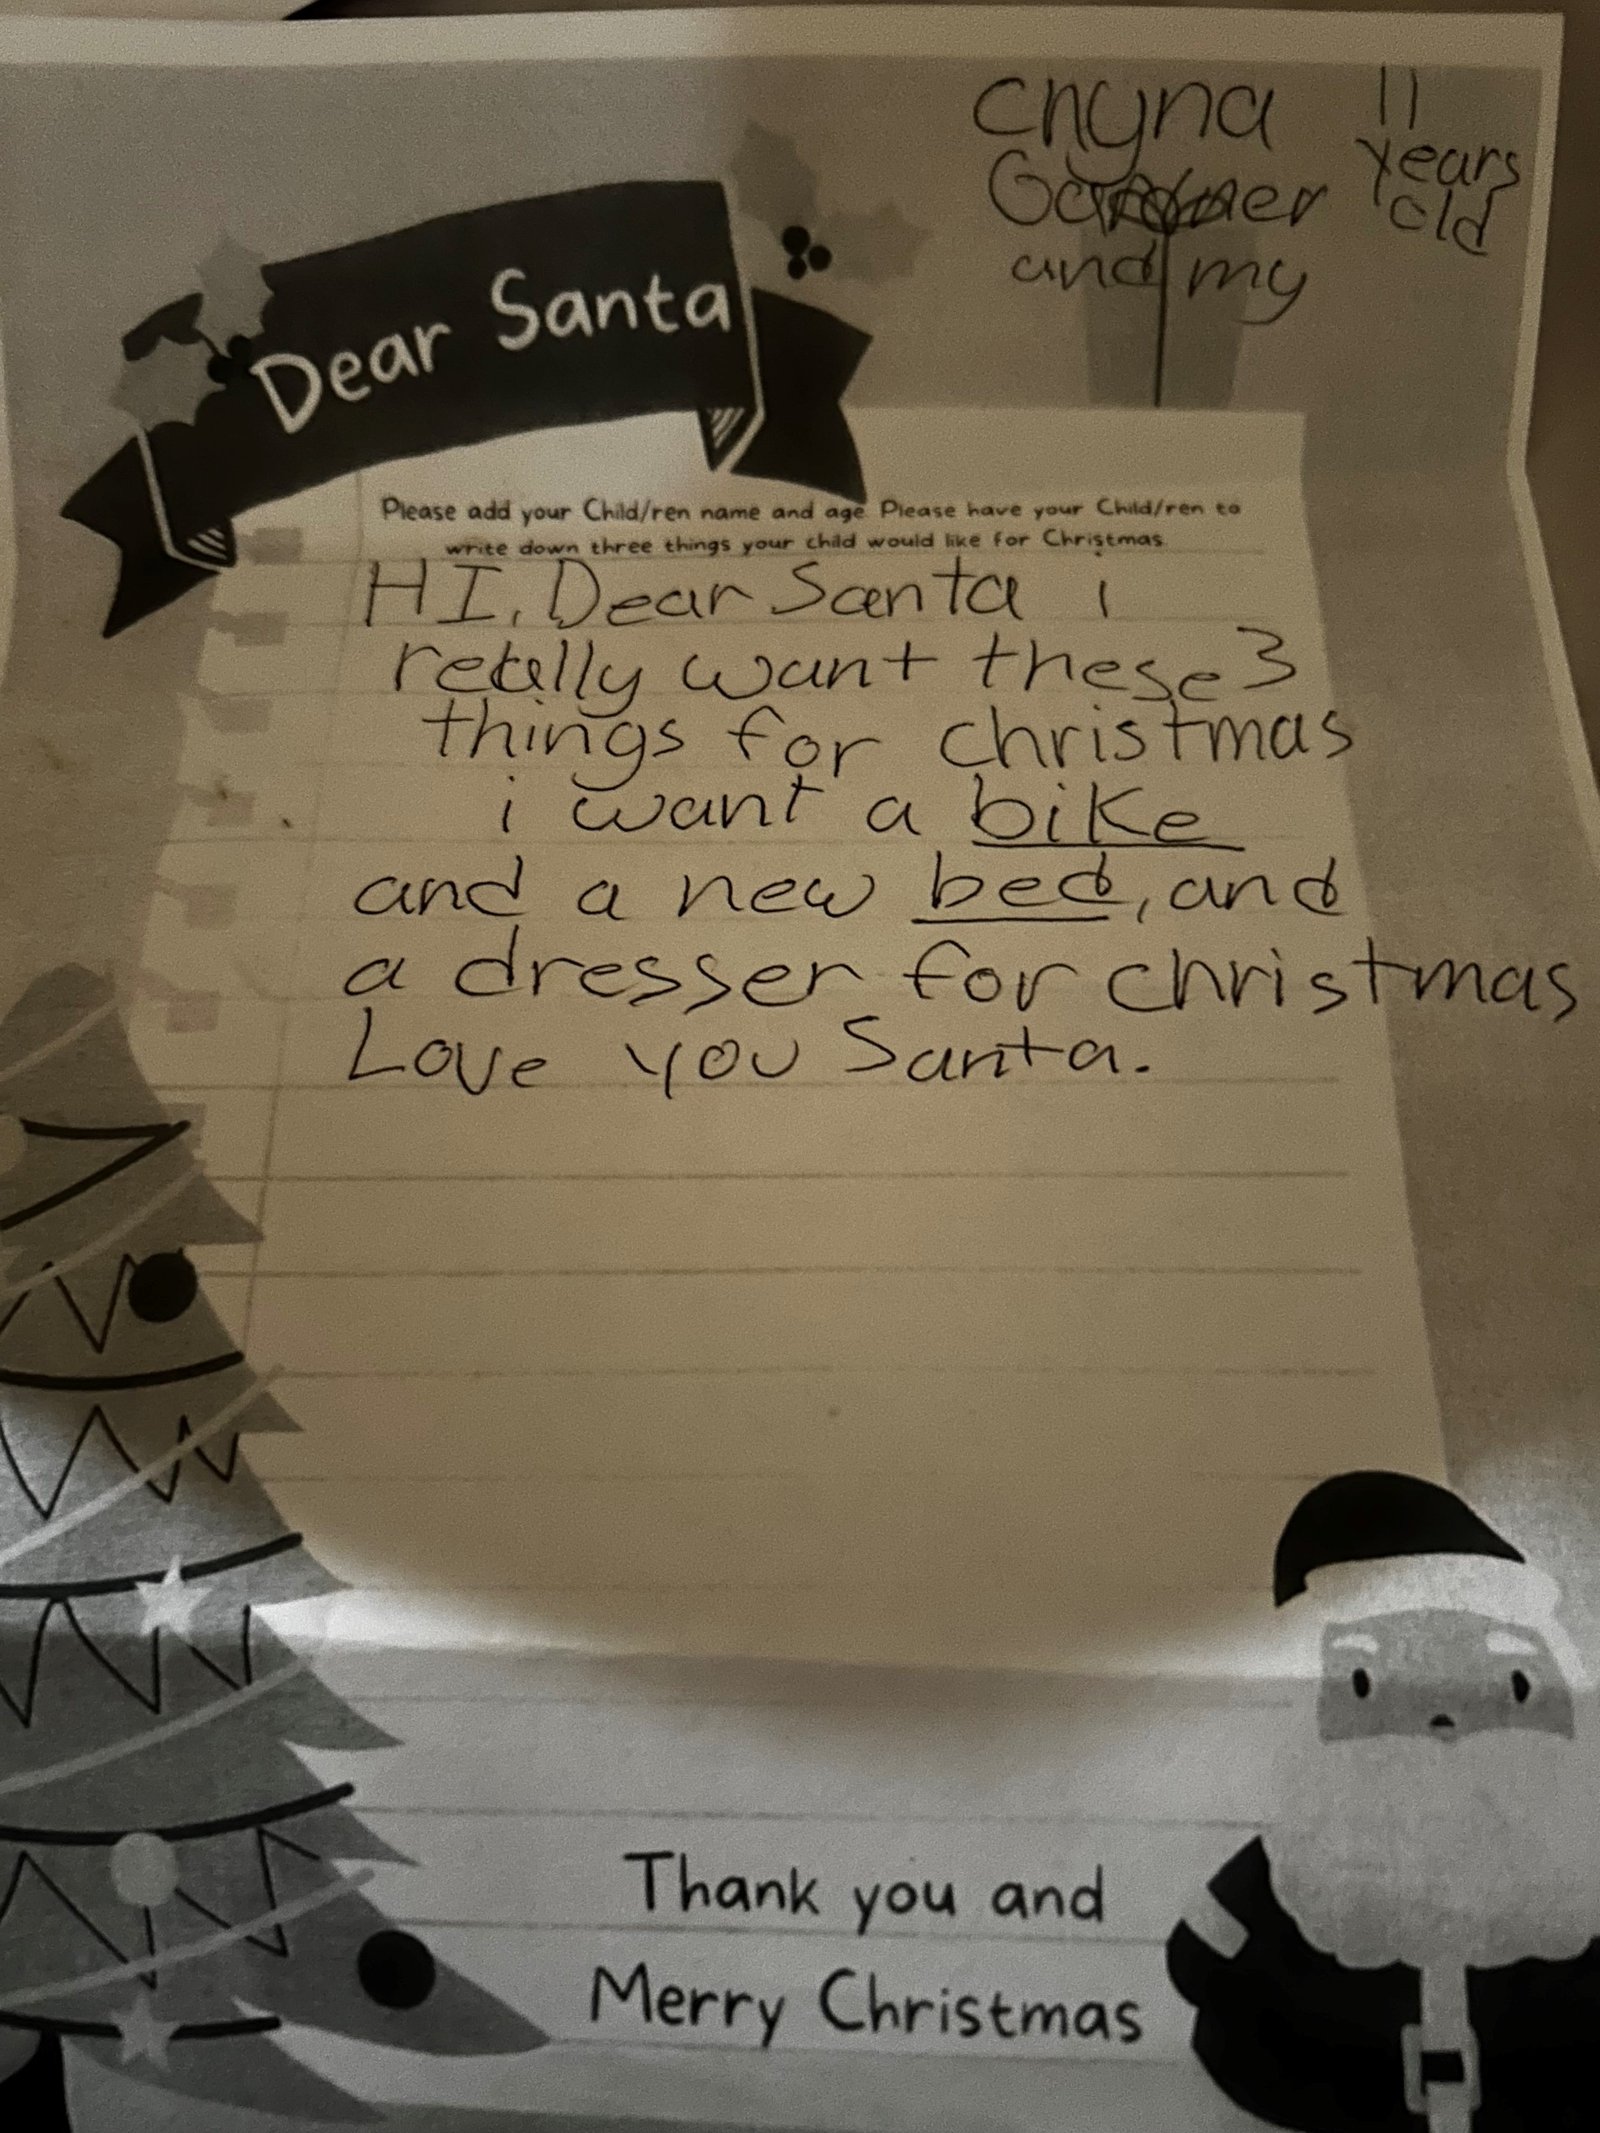 Chyna 11
Gardner years
and my old
Dear Santa
Please add your Child/ren name and age Please have your Child/ren to
write down three things your child would like for Christmas
HI, Dear Santa i
really want these 3
things for christmas
i want a bike
and a new bed, and
a dresser for christmas
Love you Santa.
Thank you and
Merry Christmas